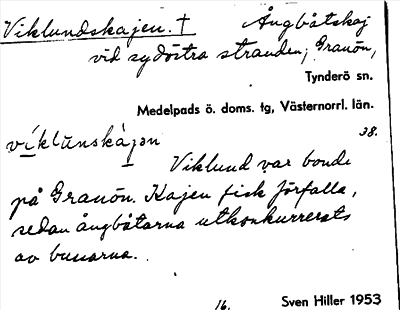 Viklundskajen. † Ångbåtskaj
vid sydöstra stranden, Granön,
Tynderö sn.
Medelpads ö. doms. tg, Västernorrl. län.
38.
víklūnskàjən
Viklund var bonde
på Granön. Kajen fick förfalla,
sedan ångbåtarna utkonkurrerats
av bussarna.
16. Sven Hiller 1953